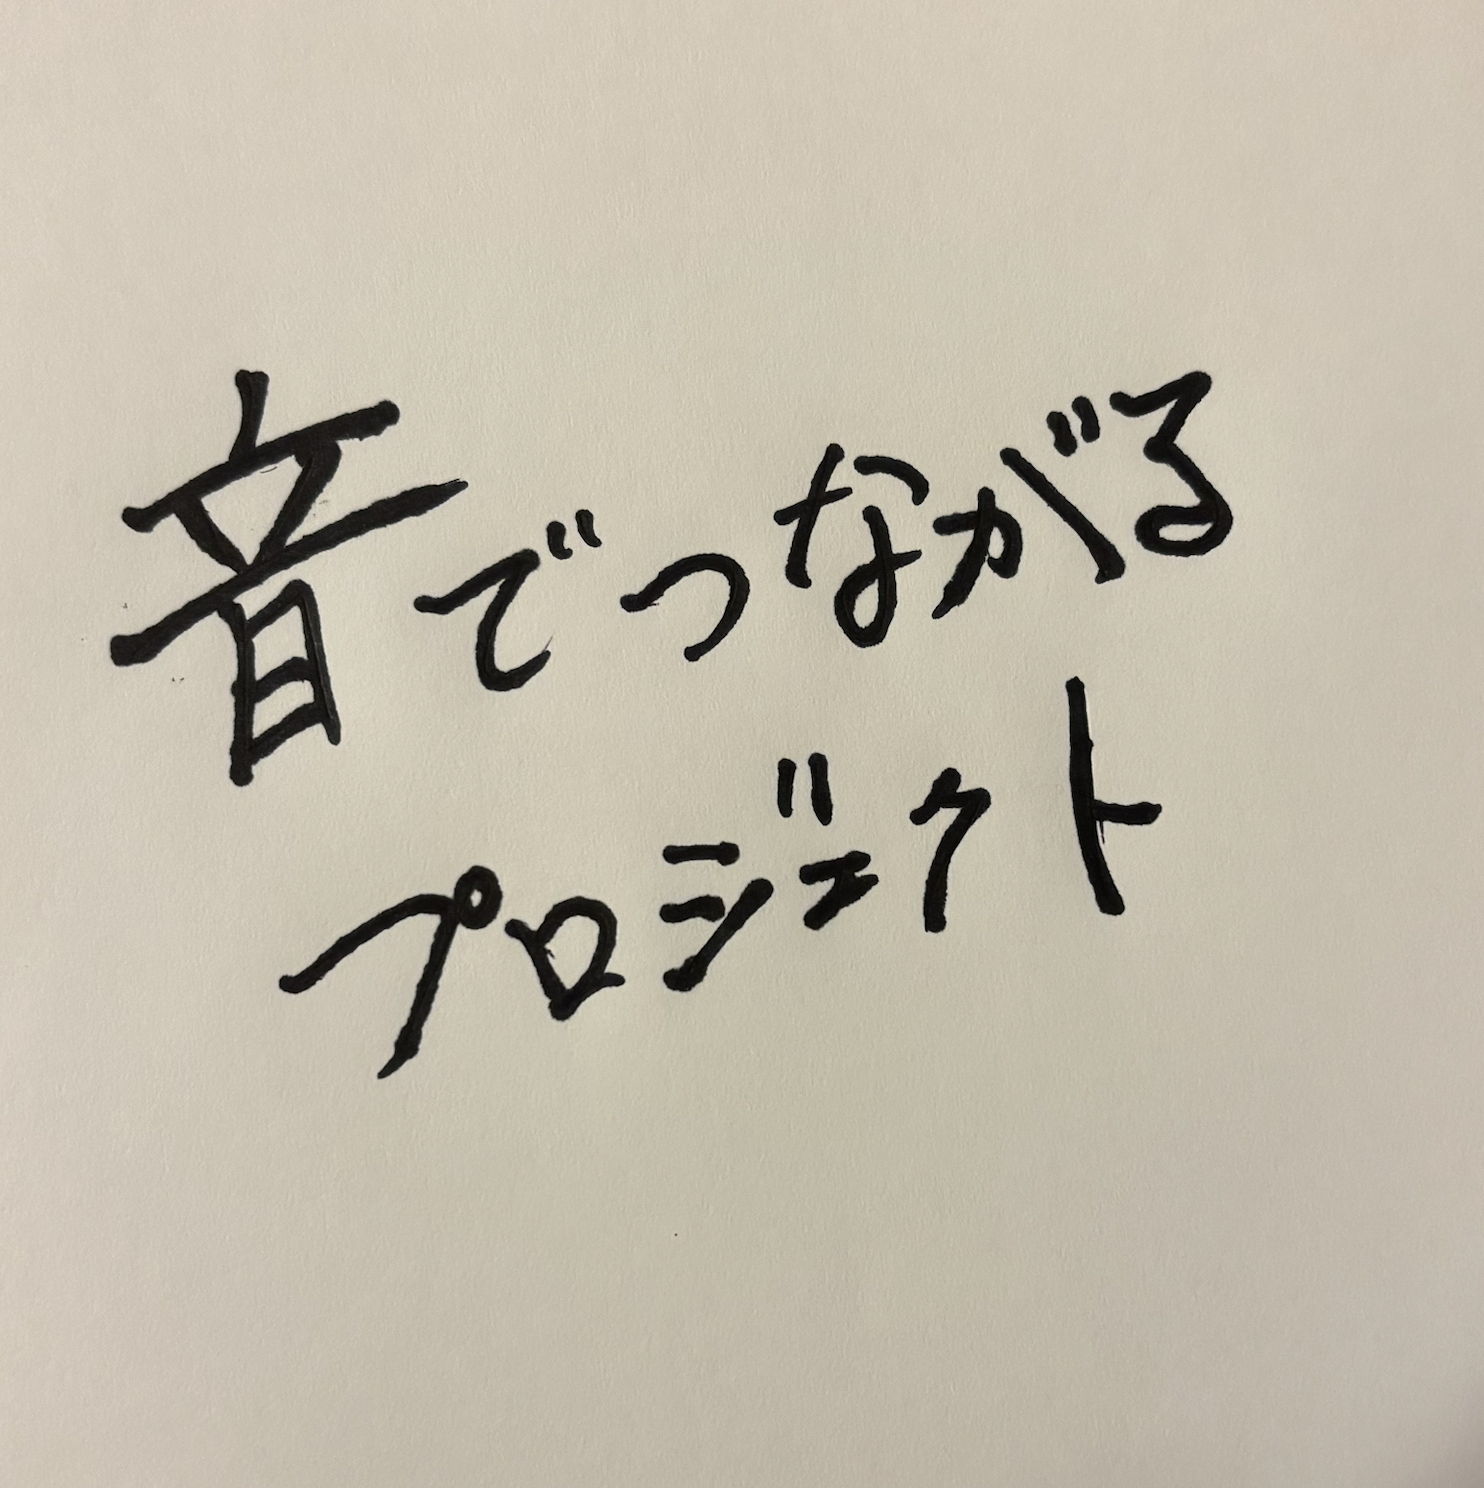 音でつながる
プロジェクト